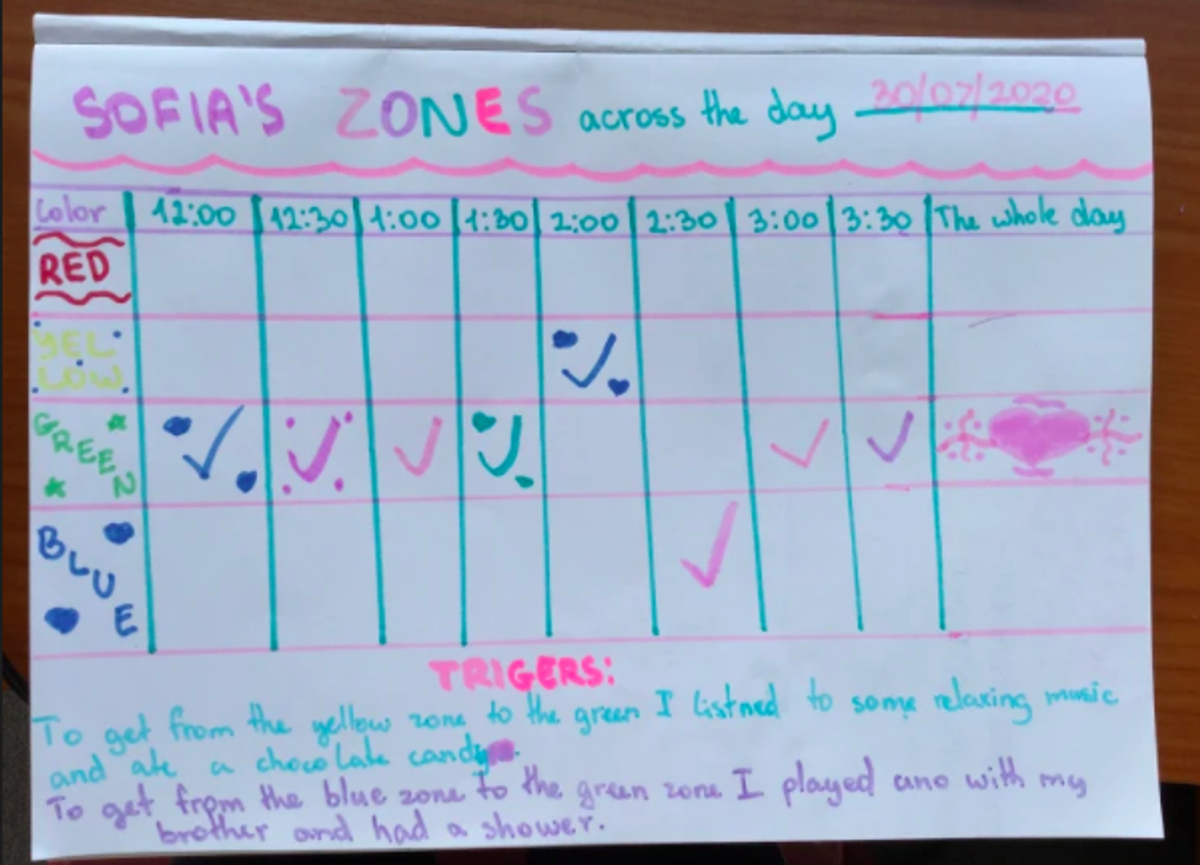 SOFIA'S ZONES across the day 30/07/2020
Color 12:00 12:30 1:00 1:30 2:00 2:30 3:00 3:30 The whole day
RED
YEL
LOW
GREEN
BLUE
TRIGERS:
To get from the yellow zone to the green I listned to some relaxing music
and ate a chocolate candy.
To get from the blue zone to the green zone I played uno with my
brother and had a shower.